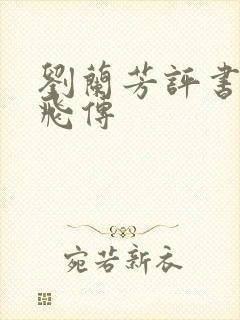 劉蘭芳評書
飛傳
宛若新衣